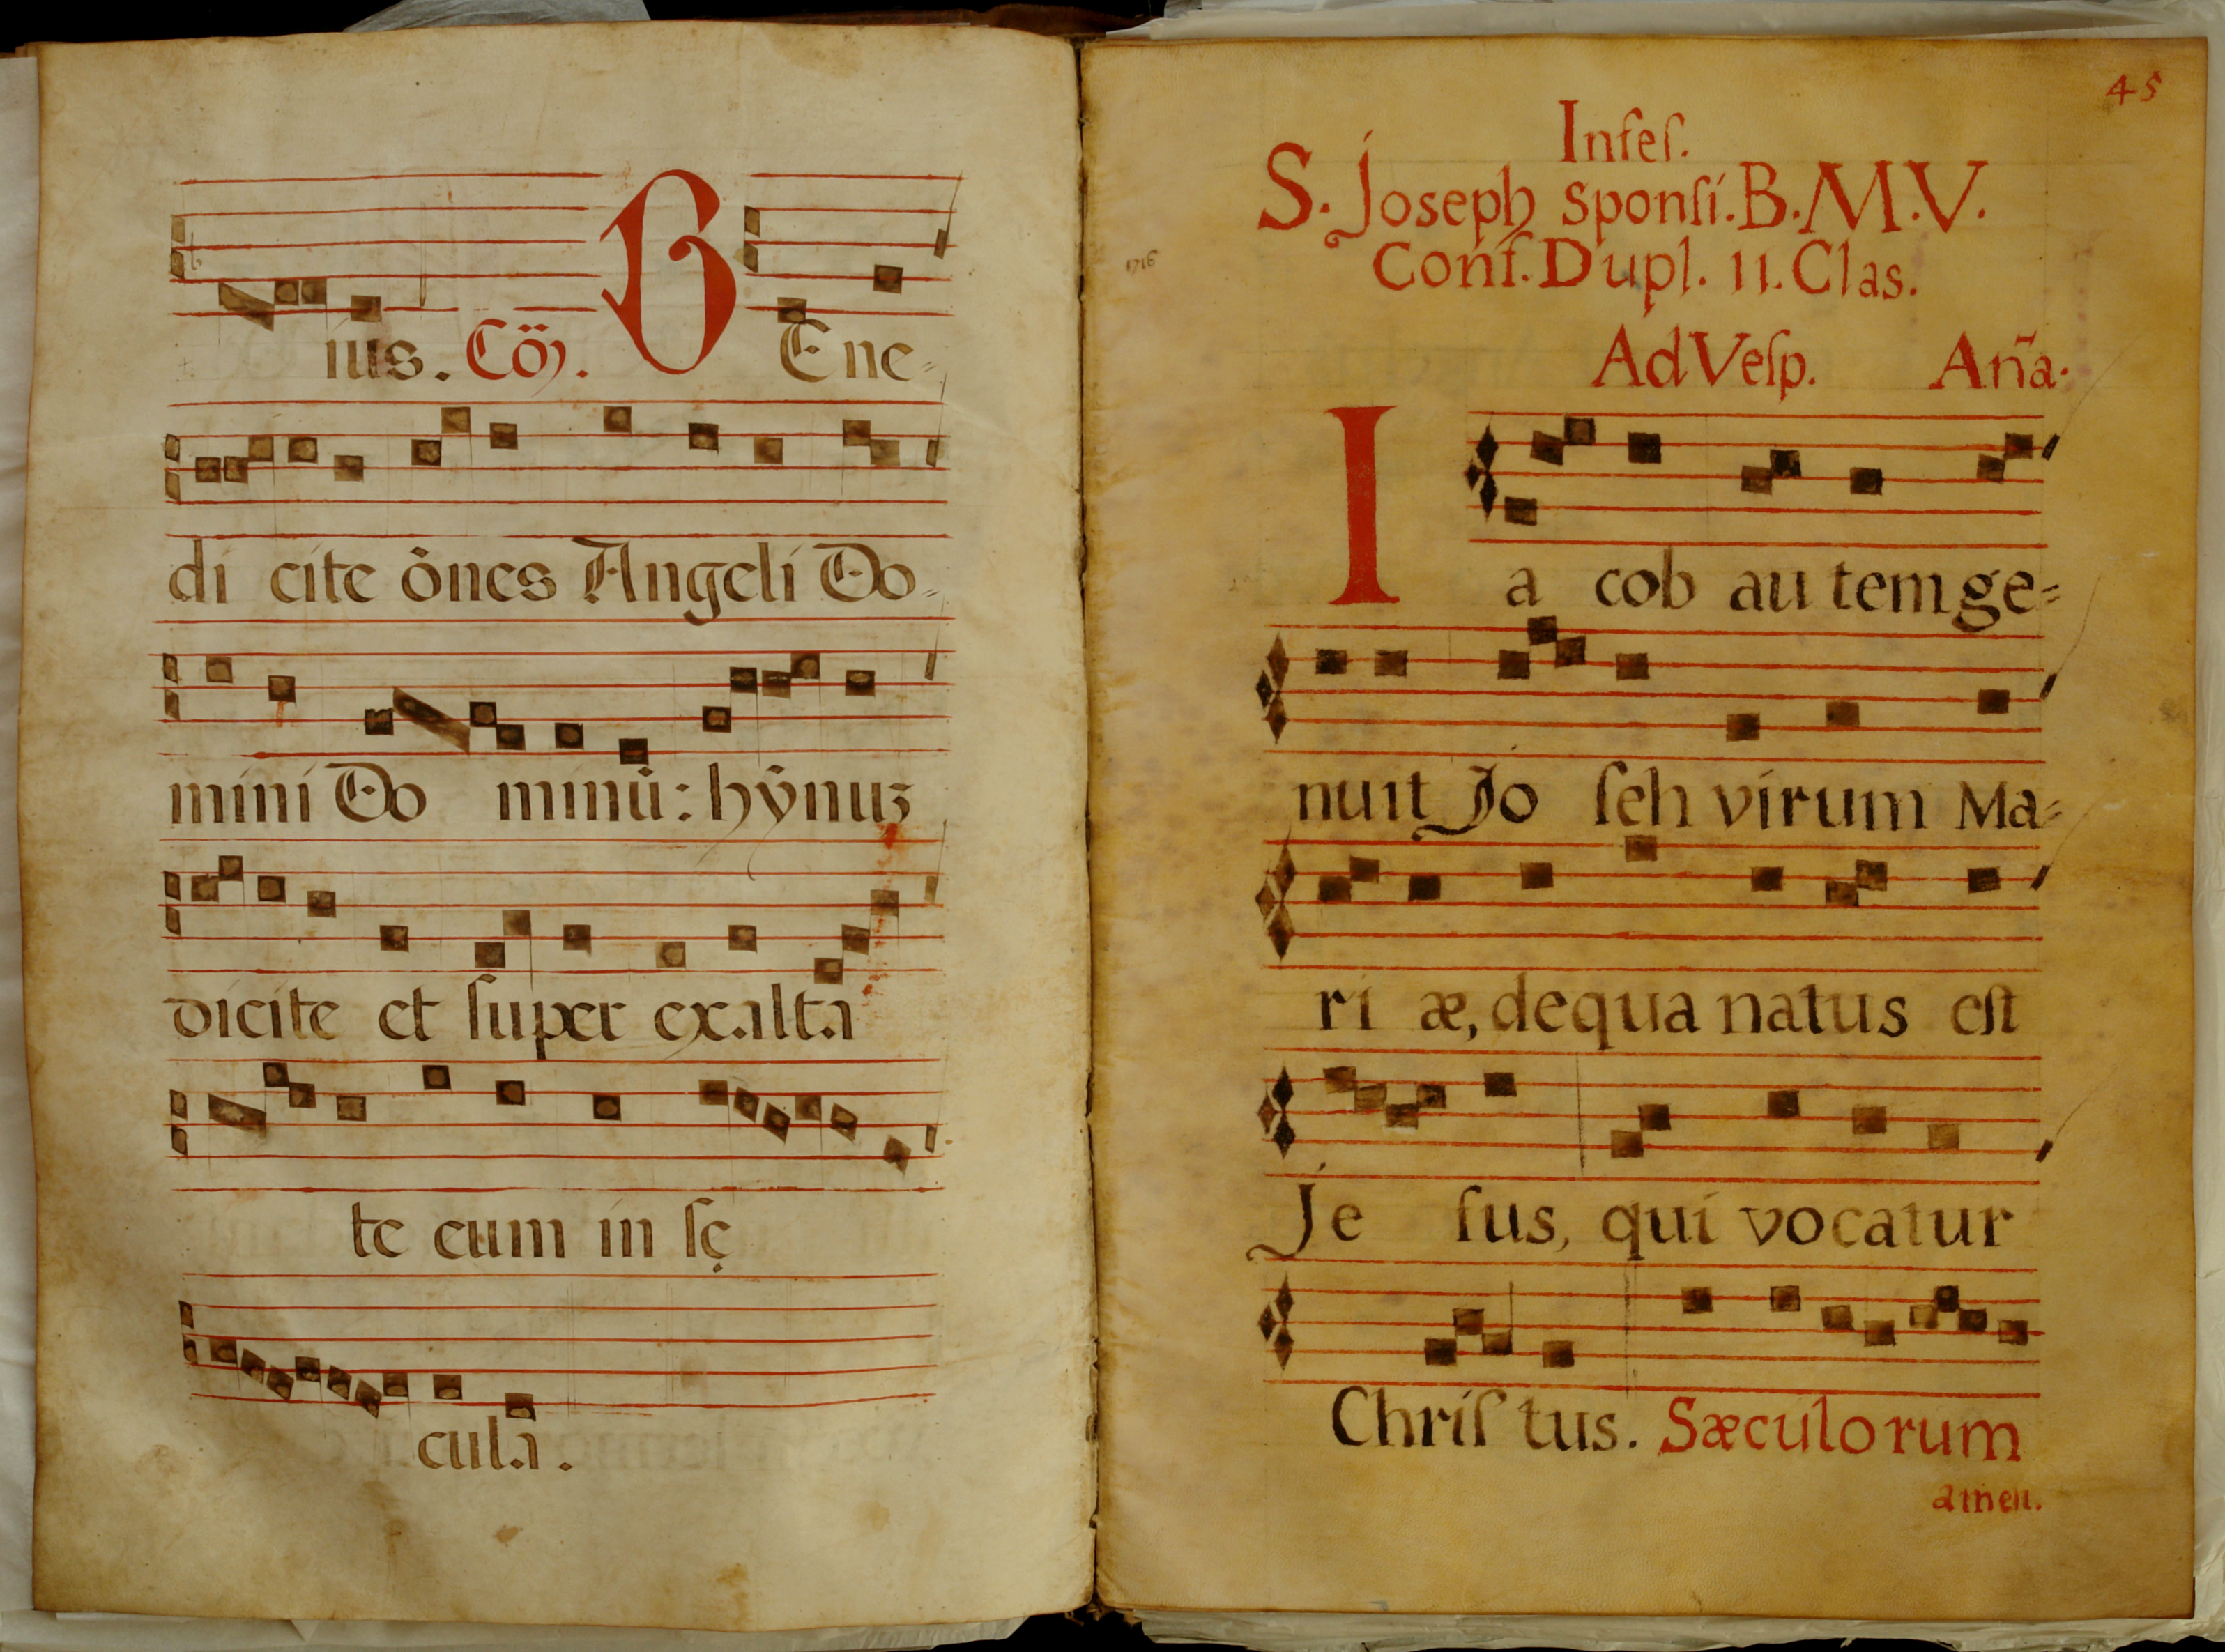 íus. Cö͂. B Ene=
di cite ônes Angeli Do=
mini Do minũ: hỹnuʒ
dicite et ſuper exalta
te eum in ſę
cula.
45
Infeſ.
S. Joseph Sponſi. B. M. V.
1716
Conf. Dupl. II. Clas.
Ad Veſp. Añа.
I a cob au tem ge=
nuit Jo ſeh virum Ma=
ri æ, dequa natus eſt
Je ſus, qui vocatur
Chriſ tus. Sæculorum
amen.